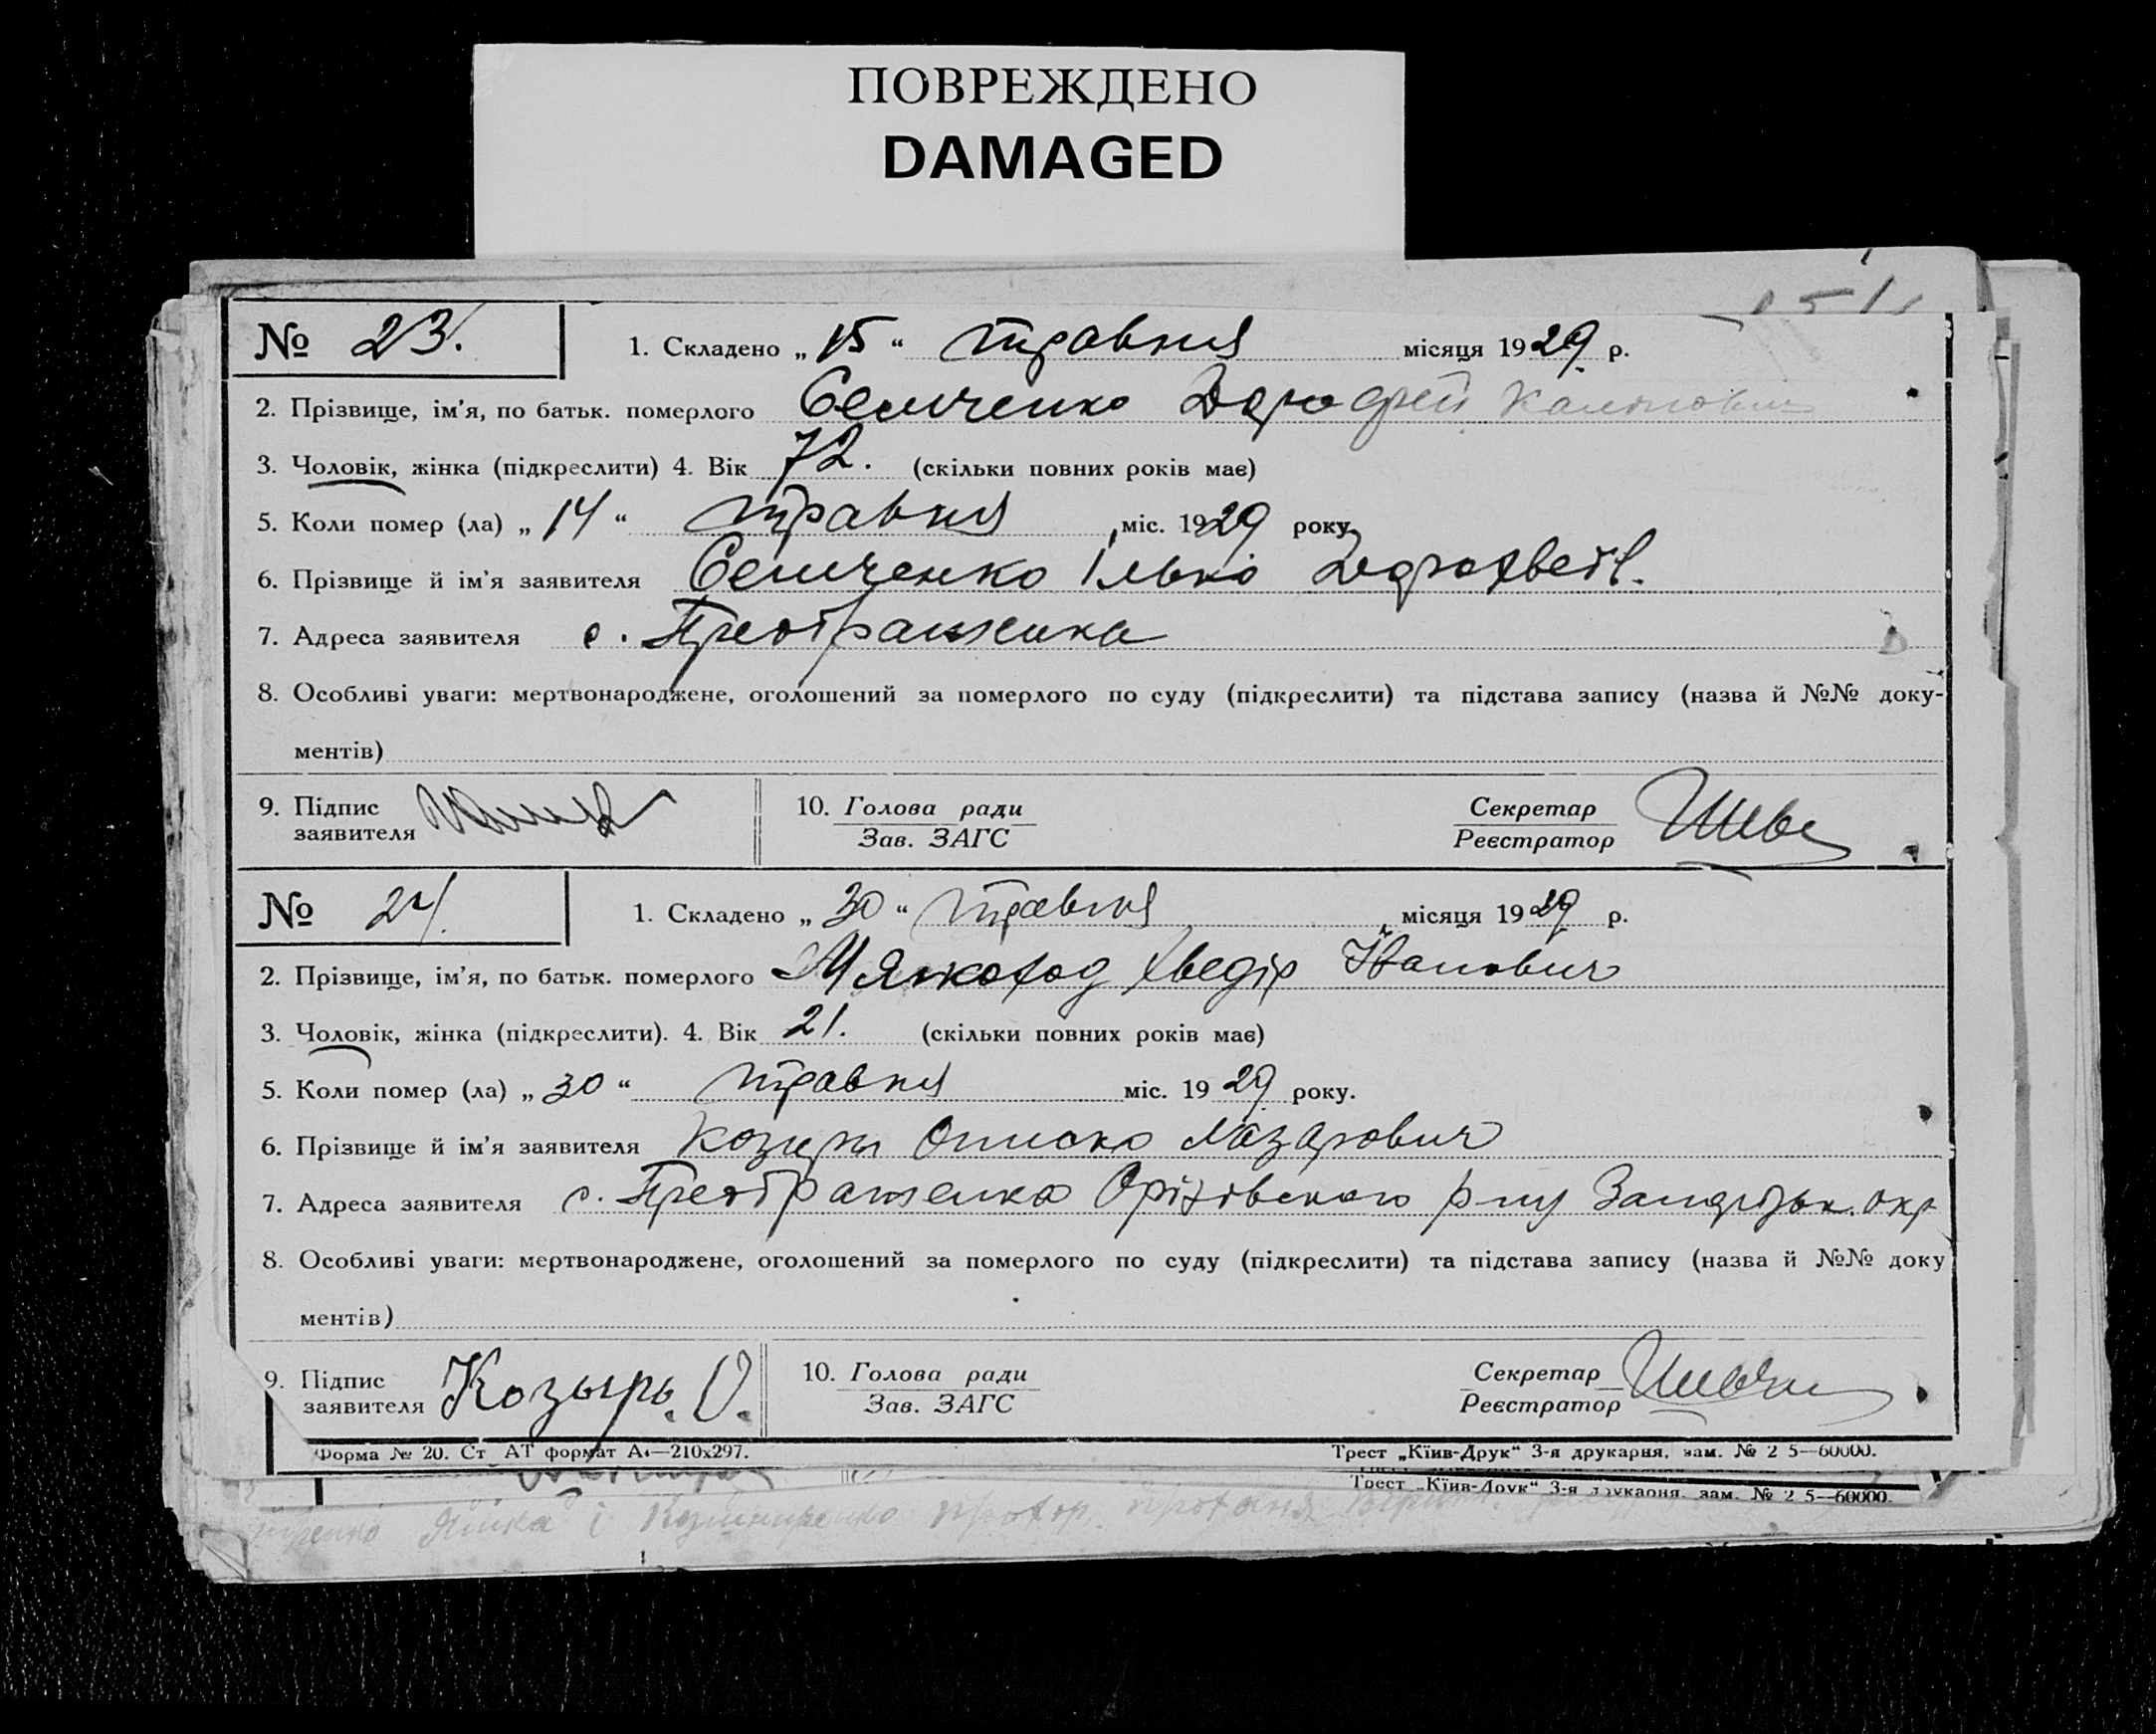 ПОВРЕЖДЕНО
DAMAGED
№ 23. 1. Складено „ 15 “ травня місяця 1929 р.
2. Прізвище, ім'я, по батьк. померлого Семченко Дорофей
3. Чоловік, жінка (підкреслити) 4. Вік 72. (скільки повних років має)
5. Коли помер (ла) „ 14 “ травня міс. 1929 року
6. Прізвище й ім'я заявителя Семченко Ілько Дорохвеєв.
7. Адреса заявителя с. Преображенка
8. Особливі уваги: мертвонароджене, оголошений за померлого по суду (підкреслити) та підстава запису (назва й №№ доку-
ментів)
9. Підпис заявителя 10. Голова ради Секретар
Зав. ЗАГС Реєстратор
№ 24. 1. Складено „ 30 “ травня місяця 1929 р.
2. Прізвище, ім'я, по батьк. померлого Мякоход Хведір Іванович
3. Чоловік, жінка (підкреслити). 4. Вік 21. (скільки повних років має)
5. Коли помер (ла) „ 30 “ травня міс. 1929 року.
6. Прізвище й ім'я заявителя Козирь Описко Лазарович
7. Адреса заявителя с. Преображенка Оріхівського р-ну Запорізьк. окр
8. Особливі уваги: мертвонароджене, оголошений за померлого по суду (підкреслити) та підстава запису (назва й №№ доку
ментів)
9. Підпис заявителя Козырь. О. 10. Голова ради Секретар
Зав. ЗАГС Реєстратор
Форма № 20. Ст АТ формат А4—210х297. Трест „Київ-Друк“ 3-я друкарня, зам. № 2 5—60000.
Трест „Київ-Друк“ 3-я друкарня, зам. № 2 5—60000.